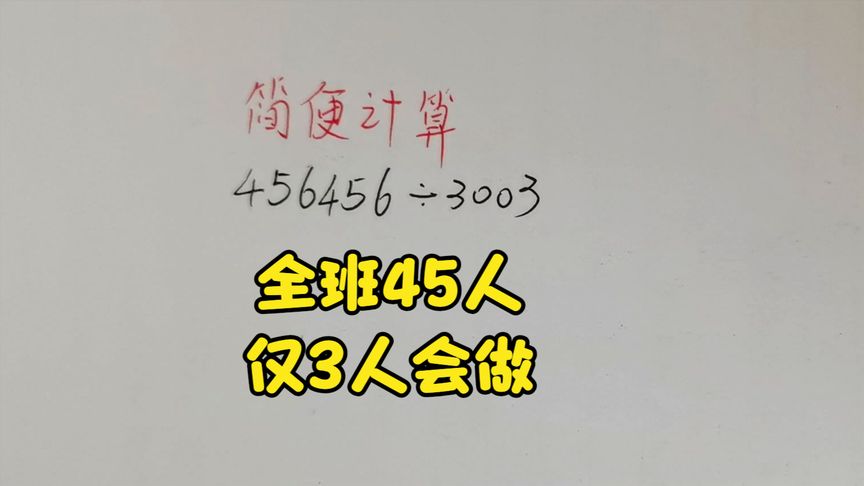 简便计算
456456÷3003
全班45人
仅3人会做